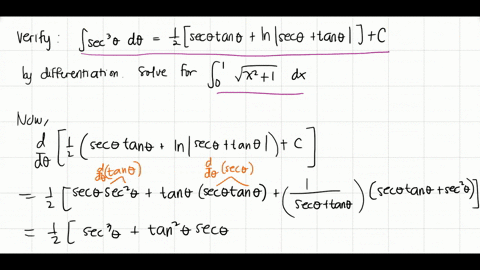 Verify: ∫sec³θ dθ = ½[secθtanθ + ln|secθ+tanθ|] + C
by differentiation. Solve for ∫₀¹ √(x²+1) dx
Now,
d/dθ [½(secθtanθ + ln|secθ+tanθ|) + C]
d/dθ(tanθ) d/dθ(secθ)
= ½[secθsec²θ + tanθ(secθtanθ) + (1/(secθ+tanθ))(secθtanθ+sec²θ)]
= ½[sec³θ + tan²θ secθ